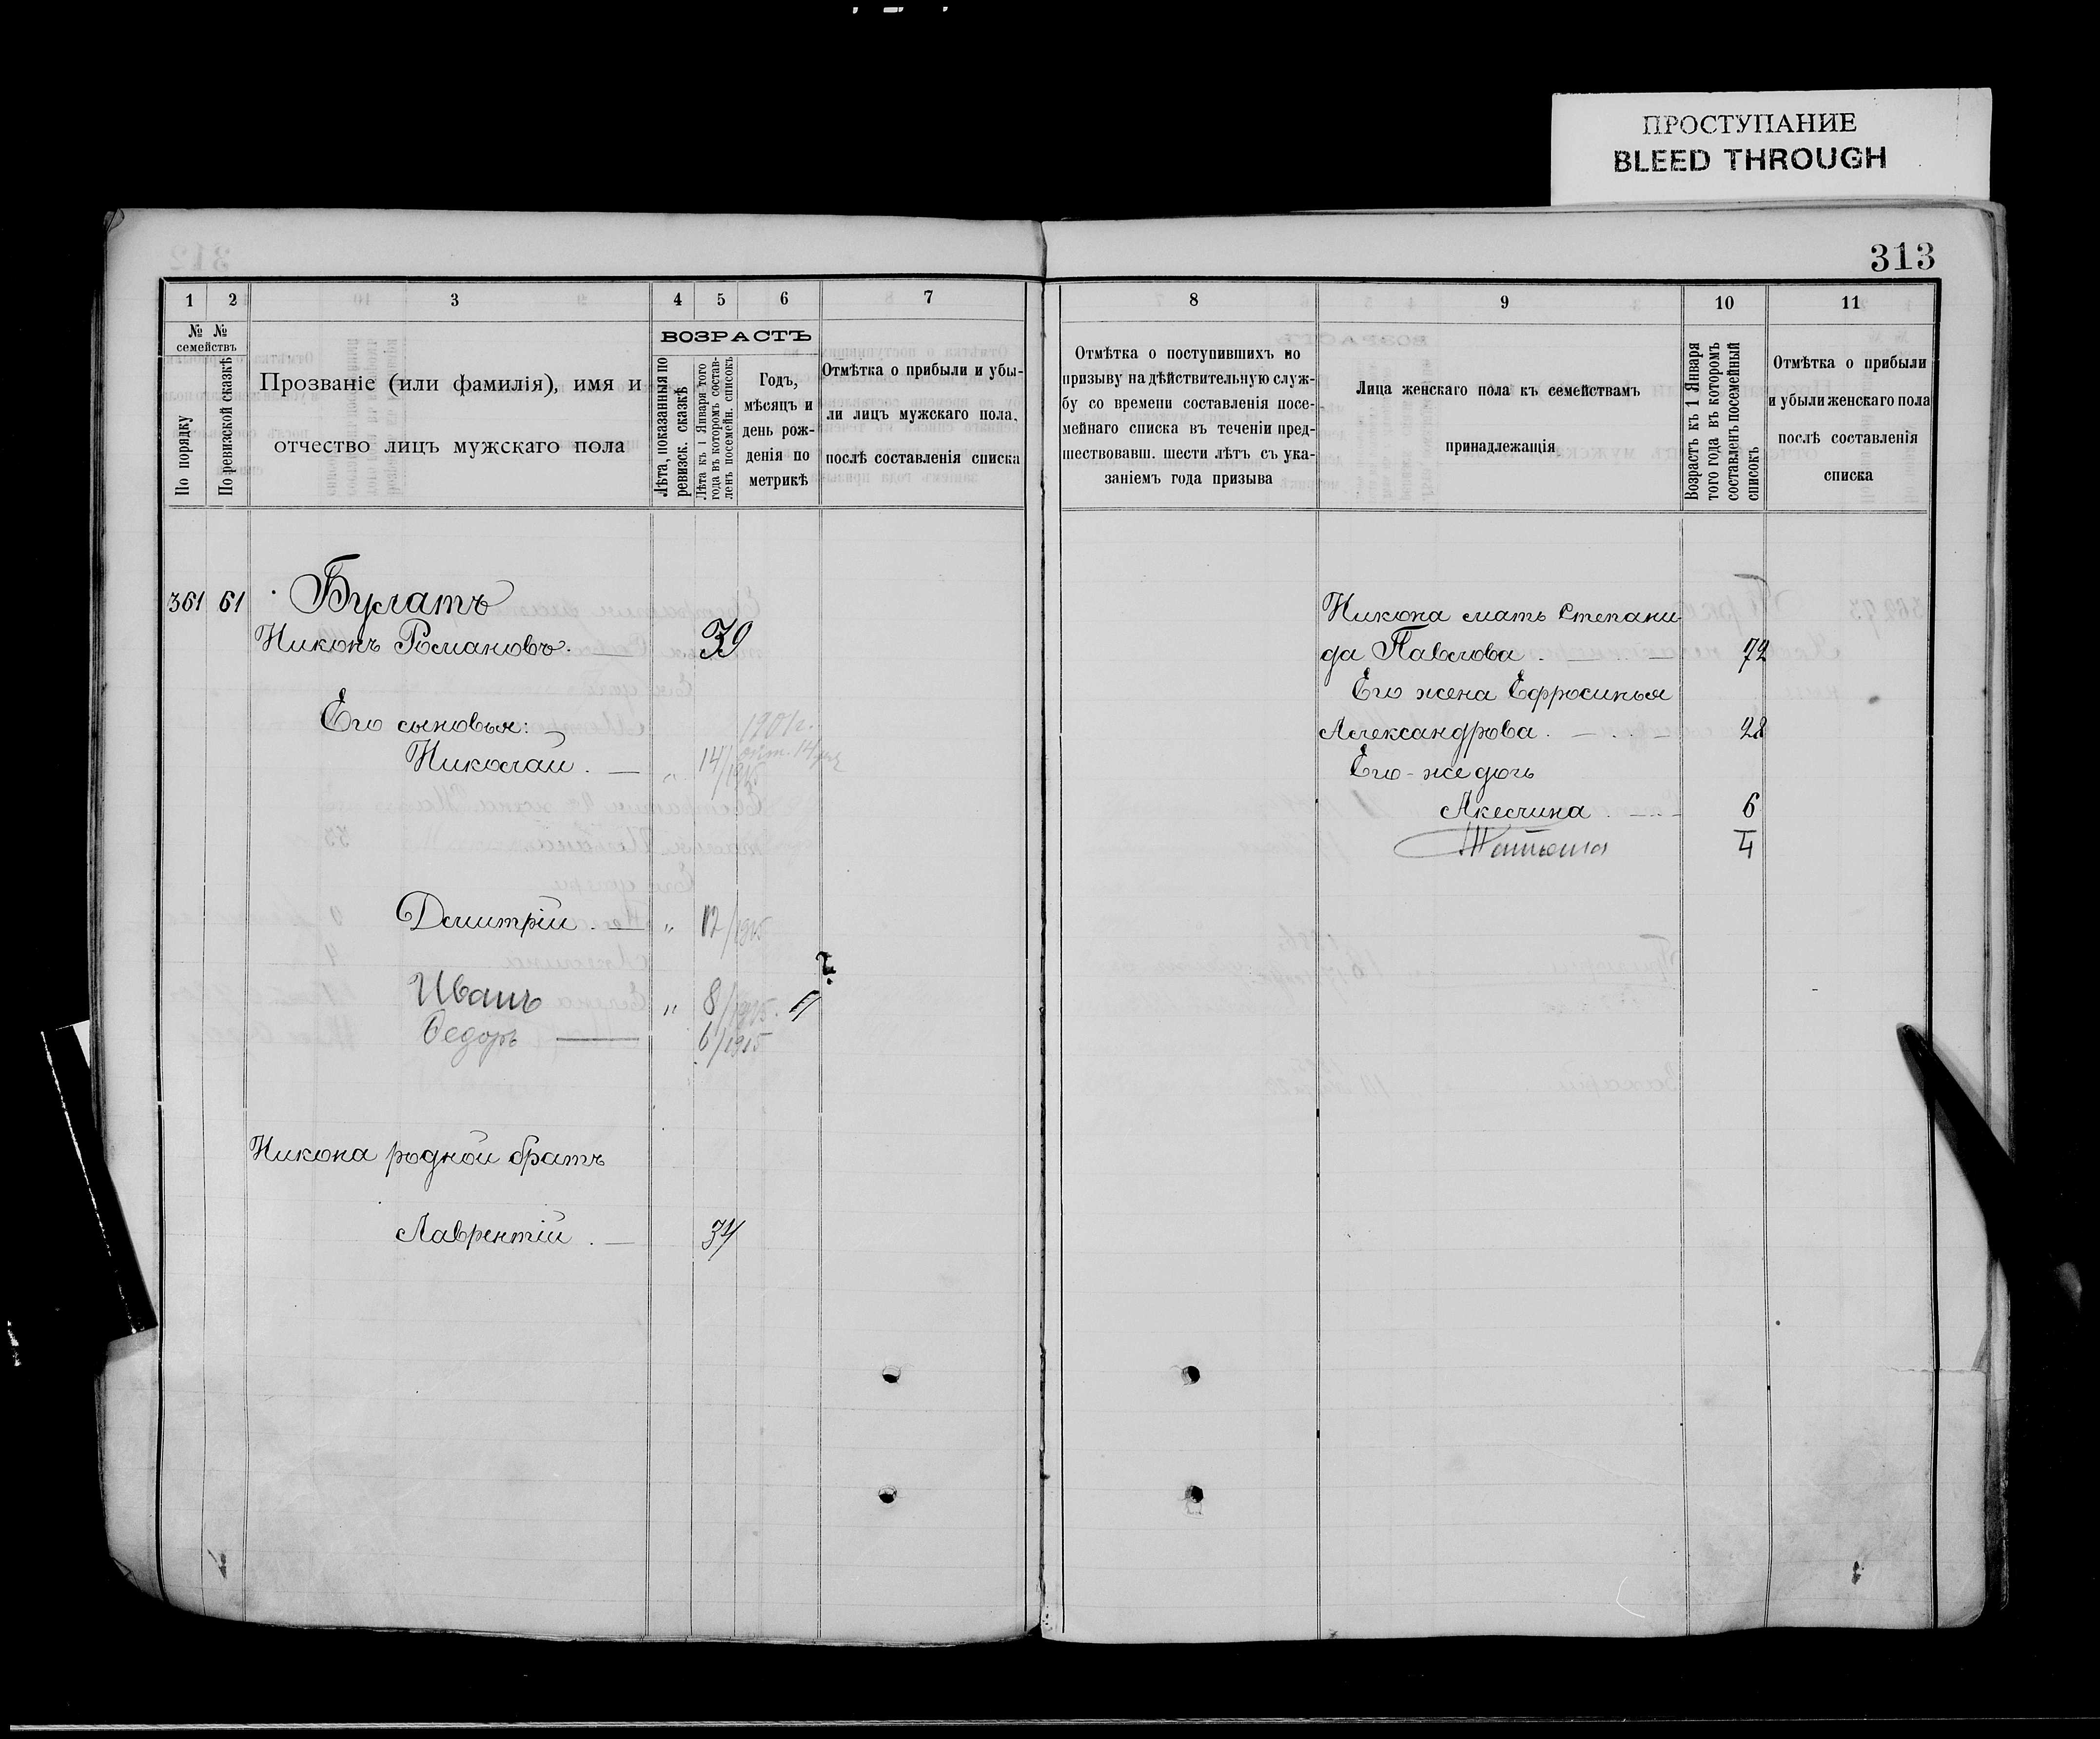 ПРОСТУПАНИЕ
BLEED THROUGH
313
1 2 3 4 5 6 7
№ № семействъ
По порядку
По ревизской сказкѣ
Прозваніе (или фамилія), имя и
отчество лицъ мужскаго пола
ВОЗРАСТЪ
Лѣта, показанныя по
ревизск. сказкѣ
Лѣта къ 1 Января того
года въ которомъ состав-
ленъ посемейн. списокъ
Годъ,
мѣсяцъ и
день рож-
денія по
метрикѣ
Отмѣтка о прибыли и убы-
ли лицъ мужскаго пола,
послѣ составленія списка
361 61 Булатъ
Никонъ Романовъ. 39
Его сыновья:
1901г.
Николай. — „ 14/1915
Дмитрій. — „ 12/1915
Иванъ „ 8/1915.
Ѳедоръ — 6/1915
Никона родной братъ
Лаврентій. — 34
8 9 10 11
Отмѣтка о поступившихъ по
призыву на дѣйствительную служ-
бу со времени составленія посе-
мейнаго списка въ теченіи пред-
шествовавш. шести лѣтъ съ ука-
заніемъ года призыва
Лица женскаго пола къ семействамъ
принадлежащія
Возрастъ къ 1 Января
того года въ которомъ
составленъ посемейный
списокъ
Отмѣтка о прибыли
и убыли женскаго пола
послѣ составленія
списка
Никона мать Степани-
да Павлова. — 72
Его жена Ефросинья
Александрова. — 28
Его-же дочь
Акелина. — 6
Татьяна 4